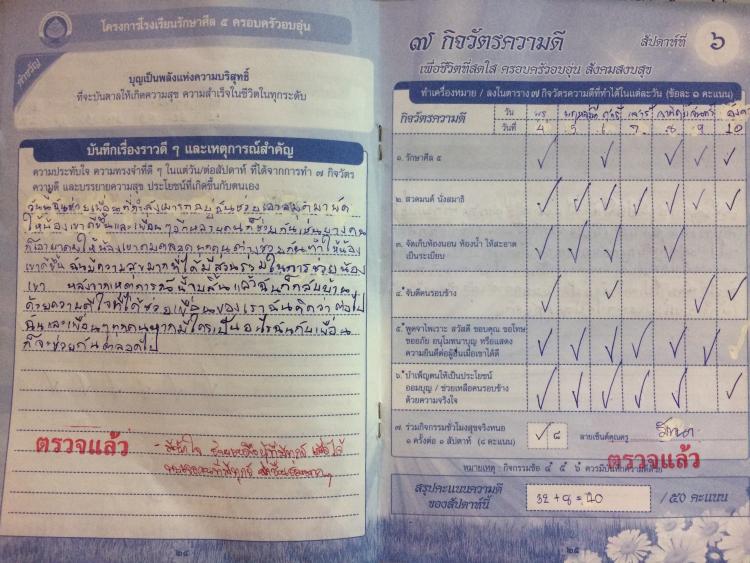 โครงการโรงเรียนรักษาศีล ๕ ครอบครัวอบอุ่น
คำขวัญ
บุญเป็นพลังแห่งความบริสุทธิ์
ที่จะบันดาลให้เกิดความสุข ความสำเร็จในชีวิตในทุกระดับ
บันทึกเรื่องราวดี ๆ และเหตุการณ์สำคัญ
ความประทับใจ ความทรงจำที่ดี ๆ ในแต่ละวัน/ต่อสัปดาห์ ที่ได้จากการทำ ๗ กิจวัตร
ความดี และบรรยายความสุข ประโยชน์ที่เกิดขึ้นกับตนเอง
วันนี้ฉันช่วยเพื่อนที่กำลัง
ให้น้องเขาดีขึ้นและเพื่อน ๆ อีกหลายคนก็ช่วยกันเช่นบางคน
ให้น้องเขาดมตลอดทุกคนต่างช่วยกันทำให้น้อง
เขาดีขึ้น ฉันมีความสุขมากที่ได้มีส่วนร่วมในการช่วยน้อง
เขา หลังจากเหตุการณ์นั้นแล้วฉันก็กลับบ้าน
ด้วยความดีใจที่ได้ช่วยเพื่อนของเราฉันคิดว่าต่อไป
ฉันและเพื่อนๆทุกคนหากมีใครเป็นอะไรฉันกับเพื่อน
ก็จะช่วยกันตลอดไป
ตรวจแล้ว
๒๔
๗ กิจวัตรความดี
สัปดาห์ที่ ๖
เพื่อชีวิตที่สดใส ครอบครัวอบอุ่น สังคมสงบสุข
ทำเครื่องหมาย / ลงในตาราง ๗ กิจวัตรความดีที่ทำได้ในแต่ละวัน (ข้อละ ๑ คะแนน)
กิจวัตรความดี
วัน พุธ พฤหัสบดี ศุกร์ เสาร์ อาทิตย์ จันทร์ อังคาร
วันที่ 4 5 6 7 8 9 10
๑. รักษาศีล ๕
๒. สวดมนต์ นั่งสมาธิ
๓. จัดเก็บห้องนอน ห้องน้ำ ให้สะอาด
เป็นระเบียบ
๔. จับดีคนรอบข้าง
๕. พูดจาไพเราะ สวัสดี ขอบคุณ ขอโทษ
ขออภัย อนุโมทนาบุญ หรือแสดง
ความยินดีต่อผู้อื่นเมื่อเขาได้ดี
๖. บำเพ็ญตนให้เป็นประโยชน์
ออมบุญ / ช่วยเหลือคนรอบข้าง
ด้วยความจริงใจ
๗. ร่วมกิจกรรมชั่วโมงสุขจริงหนอ
๑ ครั้งต่อ ๑ สัปดาห์ (๘ คะแนน)
๘
ลายเซ็นต์คุณครู
ตรวจแล้ว
หมายเหตุ : กิจกรรมข้อ ๔ ๕ ๖
สรุปคะแนนความดี
ของสัปดาห์นี้
32 + 8 = 40
/ ๕๐ คะแนน
๒๕